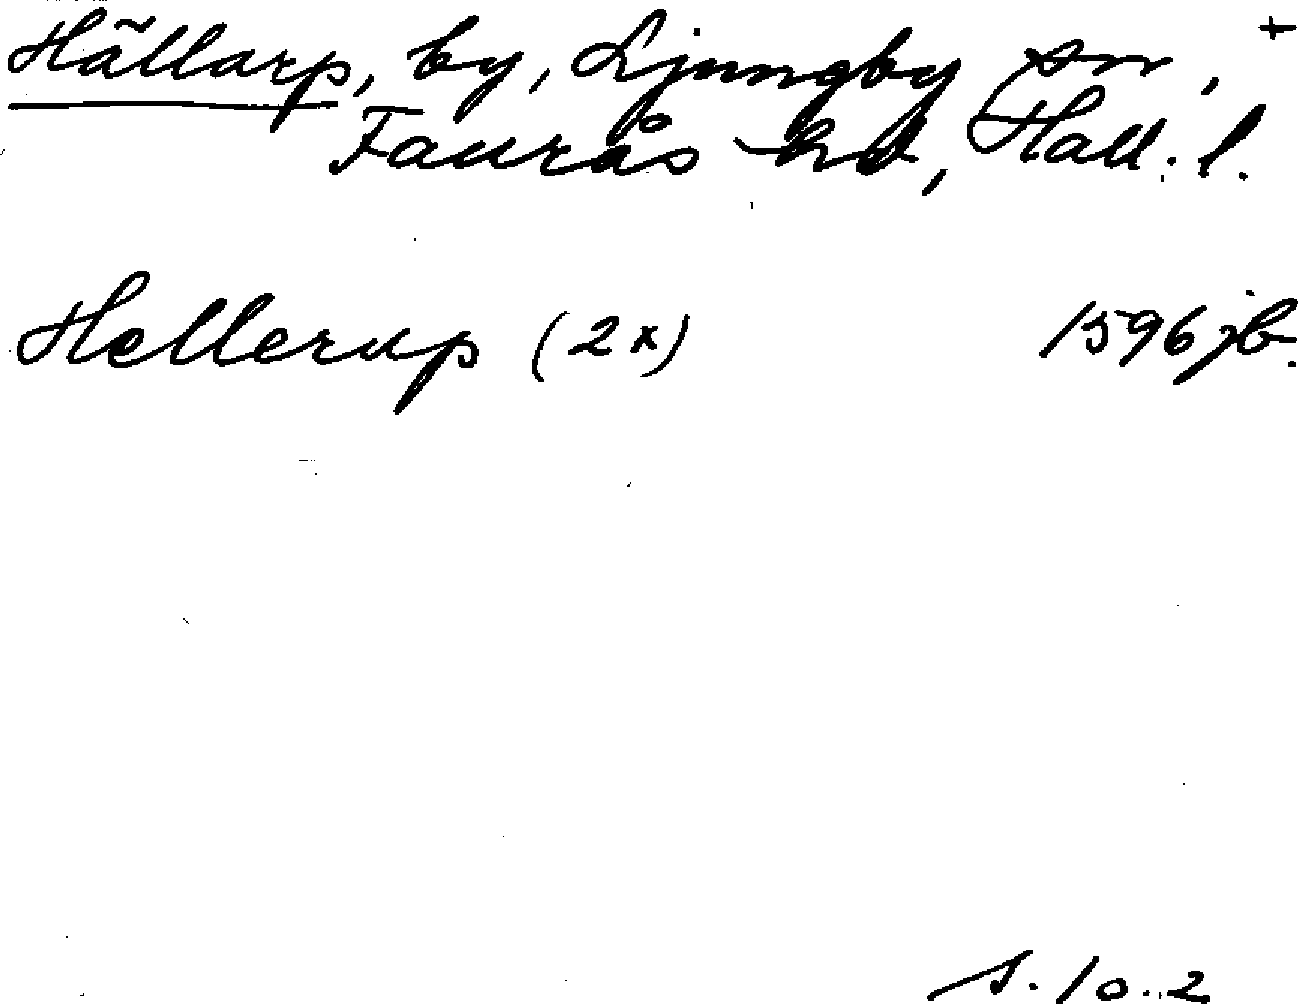 Hällarp, by, Ljungby sn, +
Faurås hd, Hall. l.
Hellerup (2x) 1596 jb.
s. 10. 2